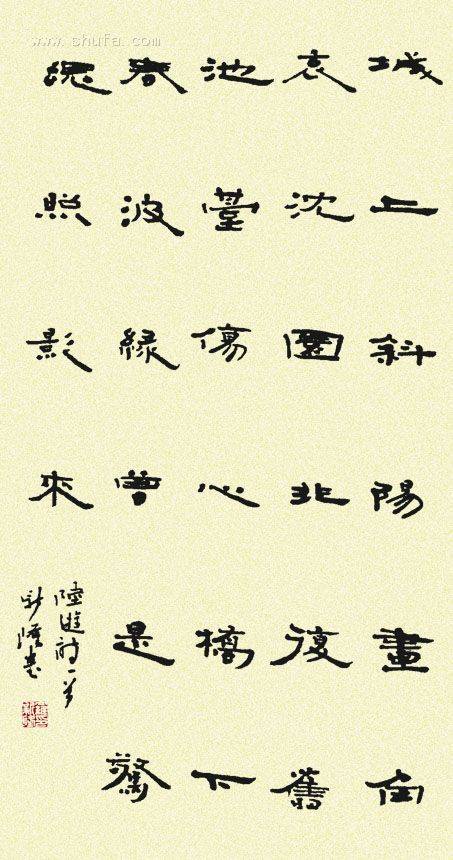 www.shufa.com
城上斜陽畫角
哀沈園非復舊
池臺傷心橋下
春波綠曾是驚
鴻照影來
陸遊詩一首
書